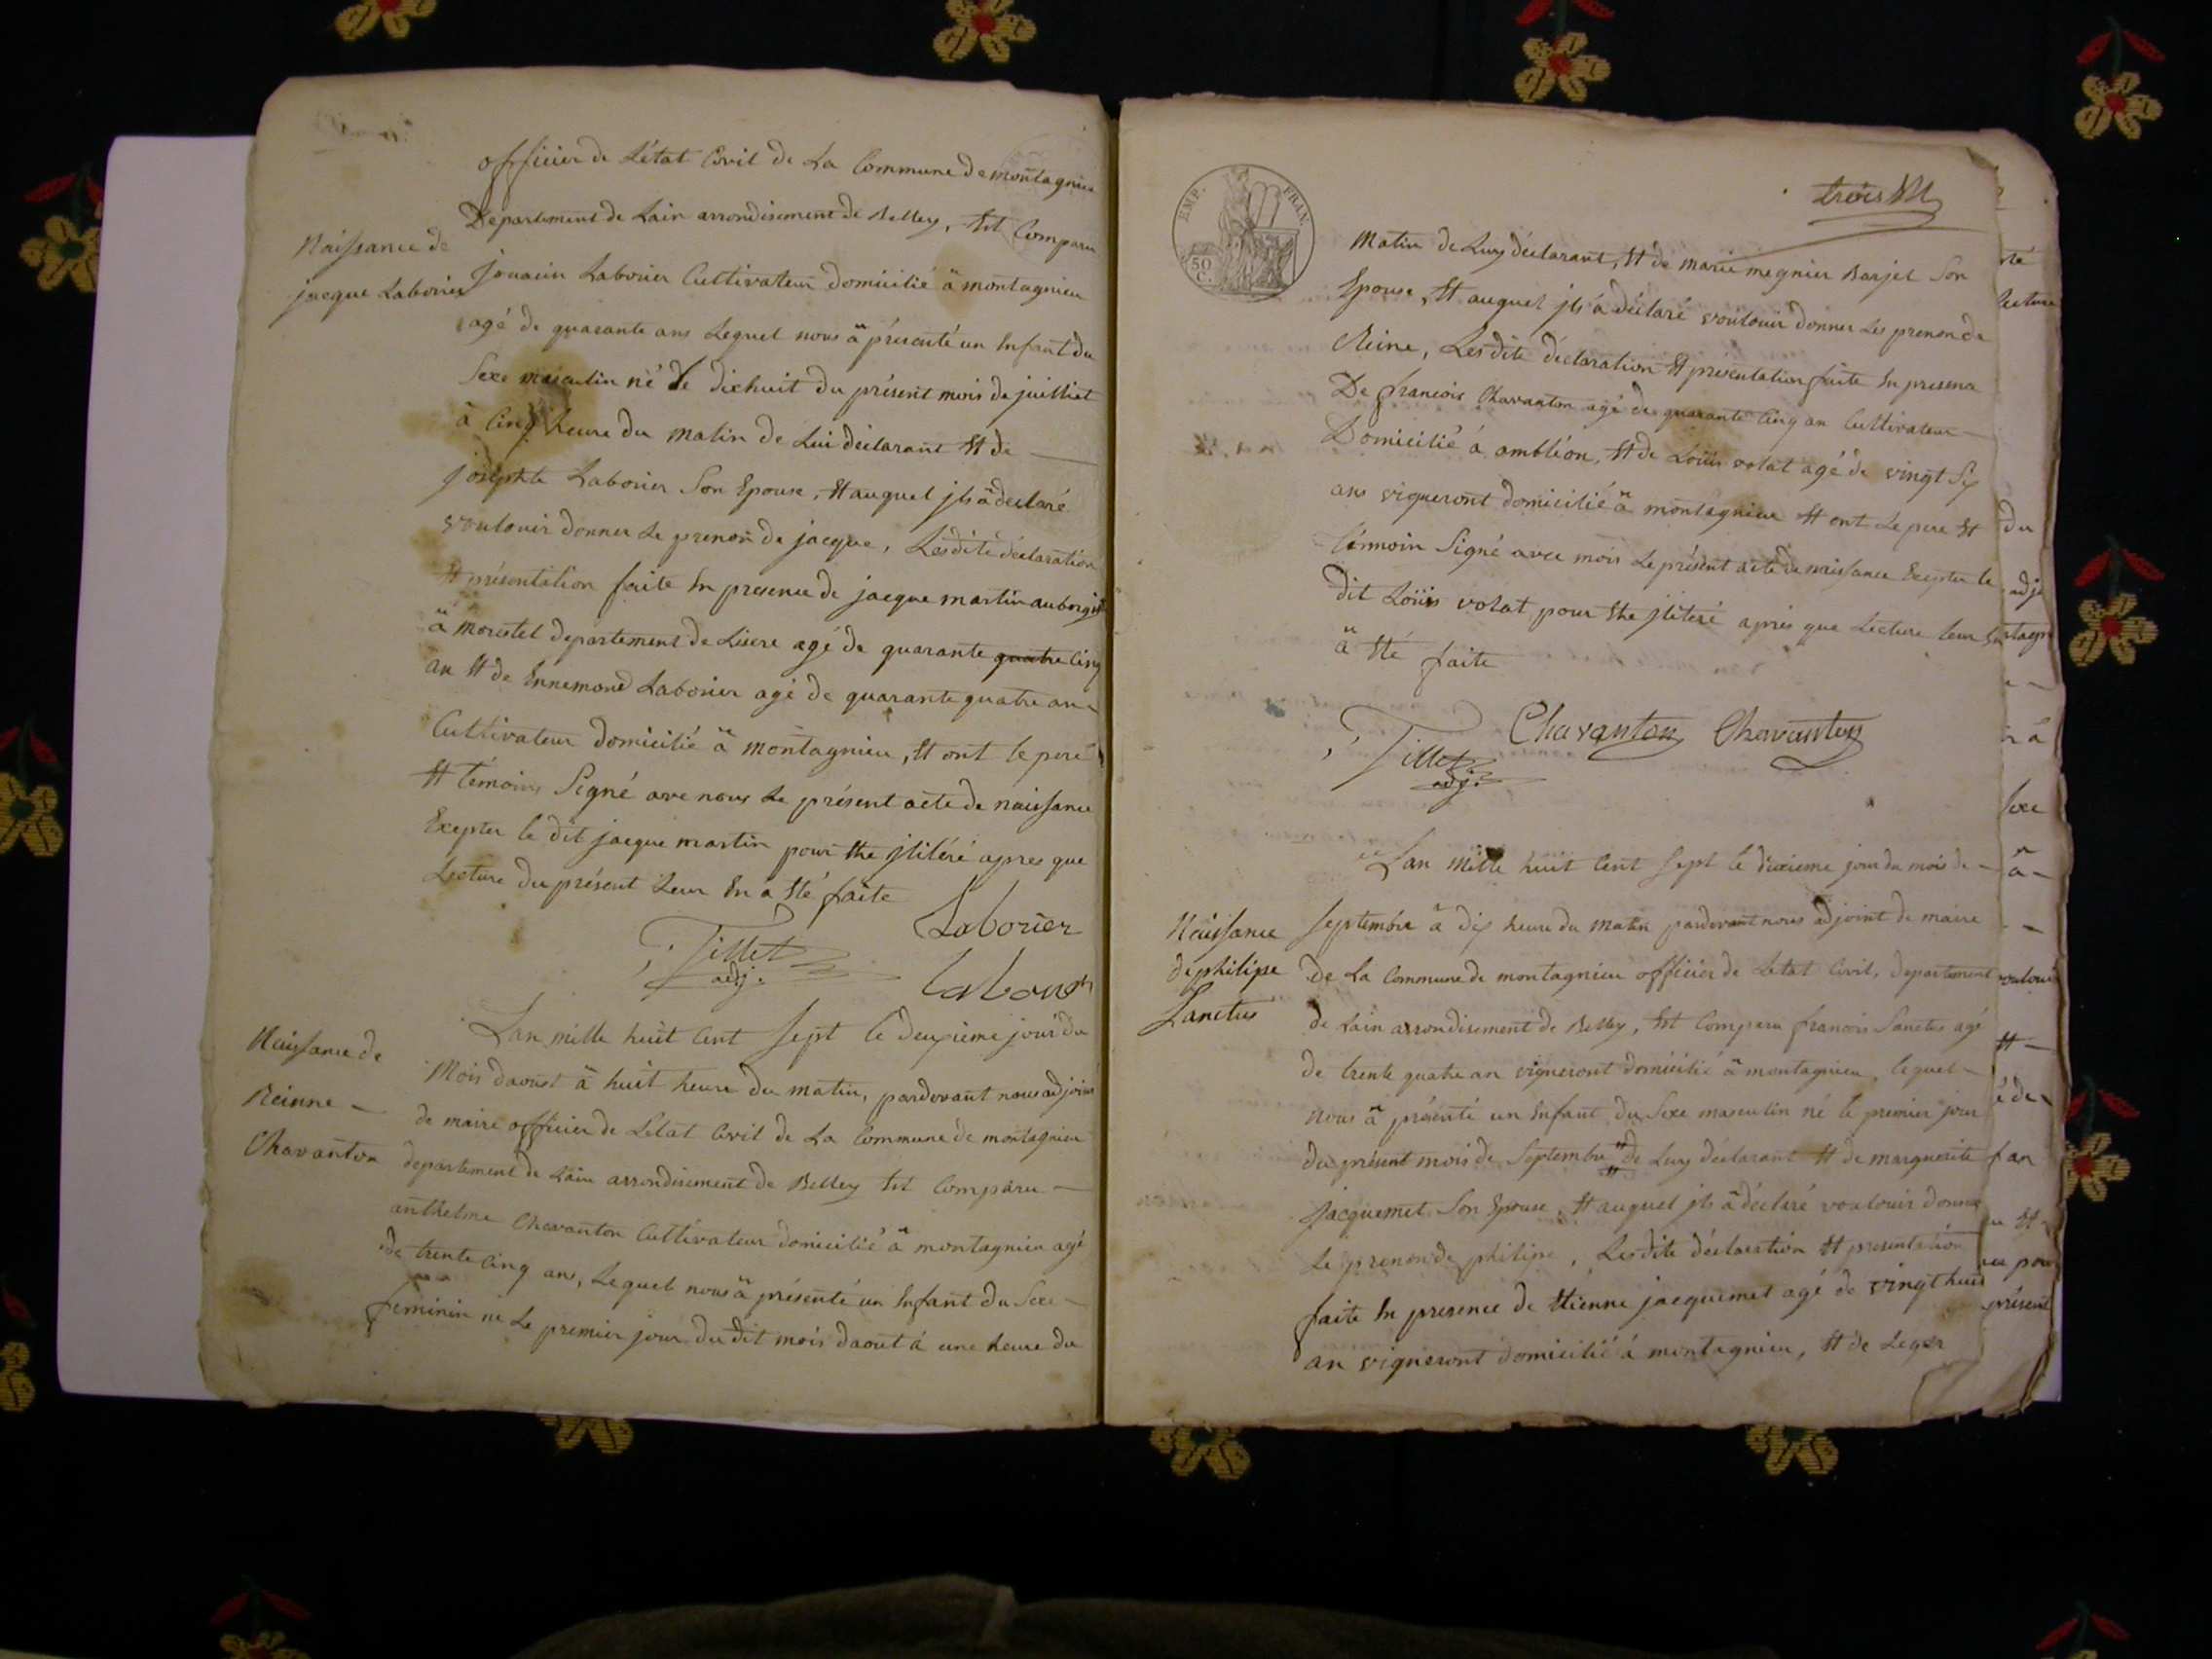 officier de L'état Civil de La Commune de montagnieu
Departement de Lain arrondisement de Belley, Est Comparu
Naissance de
jacque Laborier
jouacin Laborier Cultivateur domicilié à montagnieu
agé de quarante ans Lequel nous à présenté un Enfant du
Sexe masculin né le dixhuit du présent mois de juilliet
à Cinq heure du matin de Lui déclarant Et de
josephte Laborier Son Epouse, Et auquel jls à déclaré
voulouir donner Le prenon de jacque, Lesdite déclaration
Et présentation faite En presence de jacque martin aubergiste
à morestel departement de Lisere agé de quarante quatre Cinq
an Et de Ennemond Laborier agé de quarante quatre an
Cultivateur domicilié à montagnieu, Et ont le pere
Et témoins Signé ave nous Le présent acte de naissance
Exepter le dit jacque martin pour Etre jlitéré apres que
Lecture du présent Leur En a Eté faite
Laborier
Tillet
adj.
Laborier
Naissance de
Reinne
Chavanton
Lan mille huit Cent Sept le deuxieme jour du
Mois daoust à huit heure du matin, pardevant nous adjoint
de maire officier de L'état Civil de La Commune de montagnieu
departement de Lain arrondisement de Belley Est Comparu
anthelme Chavanton Cultivateur domicilié à montagnieu agé
de trente Cinq ans, Lequel nous à présenté un Enfant du Sexe
feminin né Le premier jour du dit mois daout à une heure du
EMP. FRAN.
50 C.
trois
Matin de Luy déclarant, Et de marie magnier Barjet Son
Epouse, Et auquel jls à déclaré voulouir donner Les prenon de
Reine, Lesdite déclaration Et présentation faite En presence
De francois Chavanton agé de quarante Cinq an Cultivateur
Domicilié à ambléon, Et de Loüis volat agé de vingt Six
ans vigneront domicilié à montagnieu Et ont Le pere Et
témoin Signé avec mois Le présent acte de naissance Exepter le
dit Loüis volat pour Etre jlitéré après que Lecture leur En
à Eté faite
Chavanton Chavanton
Tillet
adj.
Naissance
de philipe
Sanctus
Lan mille huit Cent Sept le dixieme jour du mois de
Septembre à dix heure du matin pardevant nous adjoint de maire
de La Commune de montagnieu officier de Letat Civil, departement
de Lain arrondisement de Belley, Est Comparu francois Sanctus agé
de trente quatre an vigneront domicilié à montagnieu, lequel
nous à présenté un Enfant du Sexe masculin né le premier jour
du présent mois de Septembre de Luy déclarant Et de marguerite
jacquemet Son Epouse, Et auquel jls à déclaré voulouir donner
Le prenon de philipe, Lesdite déclaration Et presentation
faite En presence de Etienne jacquemet agé de vingt huit
an vigneront domicilié à montagnieu, Et de Leger